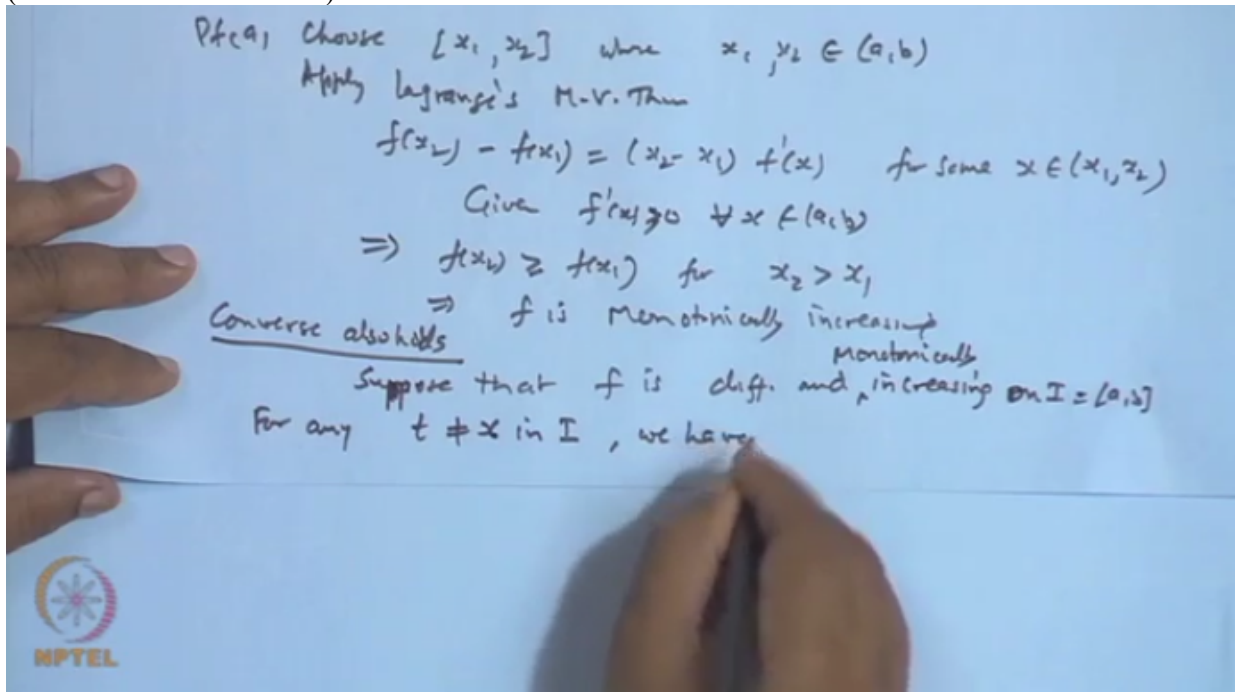 Pf (a) Choose [x₁, x₂] where x₁, x₂ ∈ (a, b)
Apply Lagrange's M.V. Thm
f(x₂) - f(x₁) = (x₂ - x₁) f'(x) for some x ∈ (x₁, x₂)
Given f'(x) ≥ 0 ∀ x ∈ (a, b)
⇒ f(x₂) ≥ f(x₁) for x₂ > x₁
⇒ f is Monotonically increasing
Converse also holds
Monotonically
Suppose that f is diff. and ‸ increasing on I = [a, b]
For any t ≠ x in I, we have
NPTEL